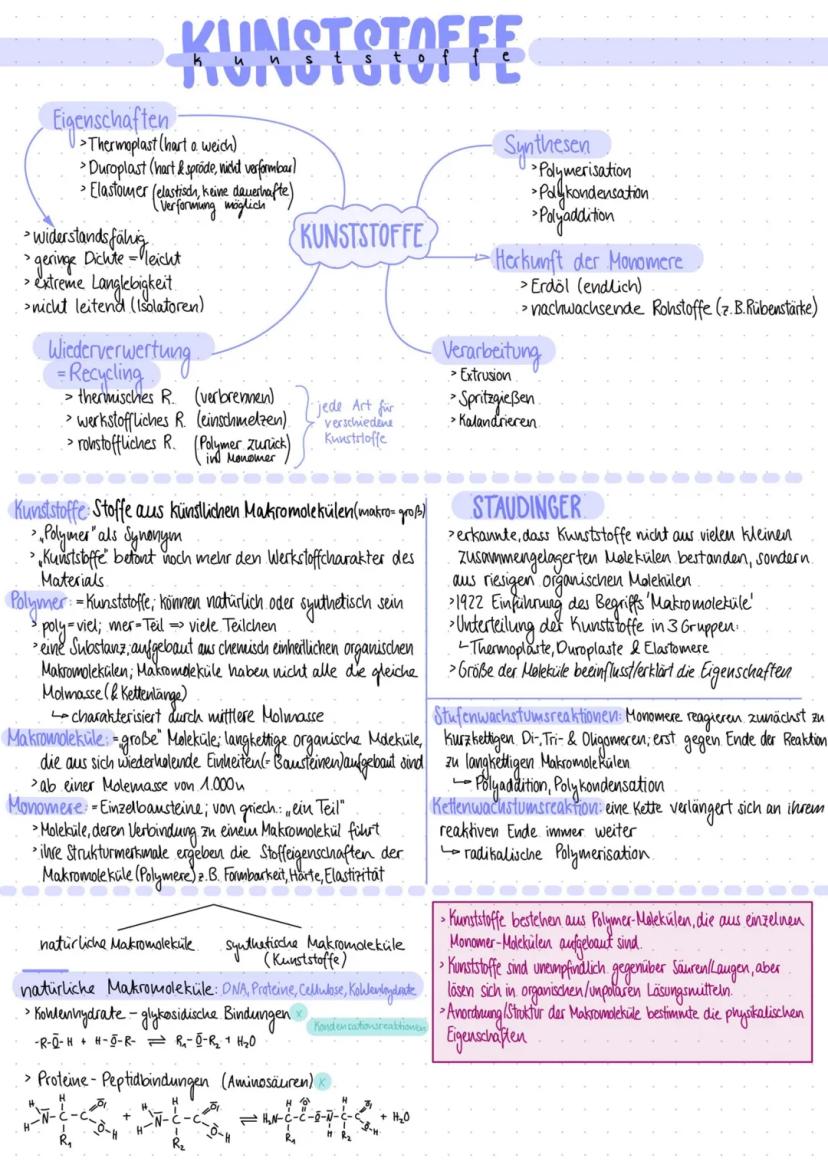 KUNSTSTOFFE
kunststoffe
Eigenschaften
> Thermoplast (hart o. weich)
> Duroplast (hart & spröde, nicht verformbar)
> Elastomer (elastisch, keine dauerhafte
Verformung möglich)
> widerstandsfähig
> geringe Dichte = leicht
> extreme Langlebigkeit
> nicht leitend (Isolatoren)
KUNSTSTOFFE
Synthesen
> Polymerisation
> Polykondensation
> Polyaddition
Herkunft der Monomere
> Erdöl (endlich)
> nachwachsende Rohstoffe (z.B. Rübenstärke)
Wiederverwertung
= Recycling
> thermisches R. (verbrennen)
> werkstoffliches R. (einschmelzen)
> rohstoffliches R. (Polymer zurück
ins Monomer)
jede Art für
verschiedene
Kunststoffe
Verarbeitung
> Extrusion
> Spritzgießen
> Kalandrieren
Kunststoffe: Stoffe aus künstlichen Makromolekülen (makro = groß)
> „Polymer" als Synonym
> „Kunststoffe" betont noch mehr den Werkstoffcharakter des
Materials
Polymer: = Kunststoffe; können natürlich oder synthetisch sein
> poly = viel; mer = Teil ⇒ viele Teilchen
> eine Substanz, aufgebaut aus chemisch einheitlichen organischen
Makromolekülen; Makromoleküle haben nicht alle die gleiche
Molmasse (& Kettenlänge)
↳ charakterisiert durch mittlere Molmasse
Makromoleküle: = „große" Moleküle; langkettige organische Moleküle,
die aus sich wiederholende Einheiten (= Bausteinen) aufgebaut sind
> ab einer Molemasse von 1.000u
Monomere: = Einzelbausteine; von griech.: „ein Teil"
> Moleküle, deren Verbindung zu einem Makromolekül führt
> ihre Strukturmerkmale ergeben die Stoffeigenschaften der
Makromoleküle (Polymere) z.B. Formbarkeit, Härte, Elastizität
STAUDINGER
> erkannte, dass Kunststoffe nicht aus vielen kleinen
zusammengelagerten Molekülen bestanden, sondern
aus riesigen organischen Molekülen
> 1922 Einführung des Begriffs 'Makromoleküle'
> Unterteilung der Kunststoffe in 3 Gruppen:
↳ Thermoplaste, Duroplaste & Elastomere
> Größe der Moleküle beeinflusst/erklärt die Eigenschaften
Stufenwachstumsreaktionen: Monomere reagieren zunächst zu
kurzkettigen Di-, Tri- & Oligomeren; erst gegen Ende der Reaktion
zu langkettigen Makromolekülen
↳ Polyaddition, Polykondensation
Kettenwachstumsreaktion: eine Kette verlängert sich an ihrem
reaktiven Ende immer weiter
↳ radikalische Polymerisation
natürliche Makromoleküle synthetische Makromoleküle
(Kunststoffe)
natürliche Makromoleküle: DNA, Proteine, Cellulose, Kohlenhydrate
> Kohlenhydrate – glykosidische Bindungen x
Kondensationsreaktionen
-R-O-H + H-O-R- ⇌ R₁-O-R₂ + H₂O
> Proteine - Peptidbindungen (Aminosäuren) x
H H O H H O H O H O
H-N-C-C + H-N-C-C ⇌ H₂N-C-C-O-N-C-C + H₂O
R₁ O-H R₂ O-H R₁ H R₂ O-H
> Kunststoffe bestehen aus Polymer-Molekülen, die aus einzelnen
Monomer-Molekülen aufgebaut sind.
> Kunststoffe sind unempfindlich gegenüber Säuren/Laugen, aber
lösen sich in organischen/unpolaren Lösungsmitteln.
> Anordnung/Struktur der Makromoleküle bestimmte die physikalischen
Eigenschaften